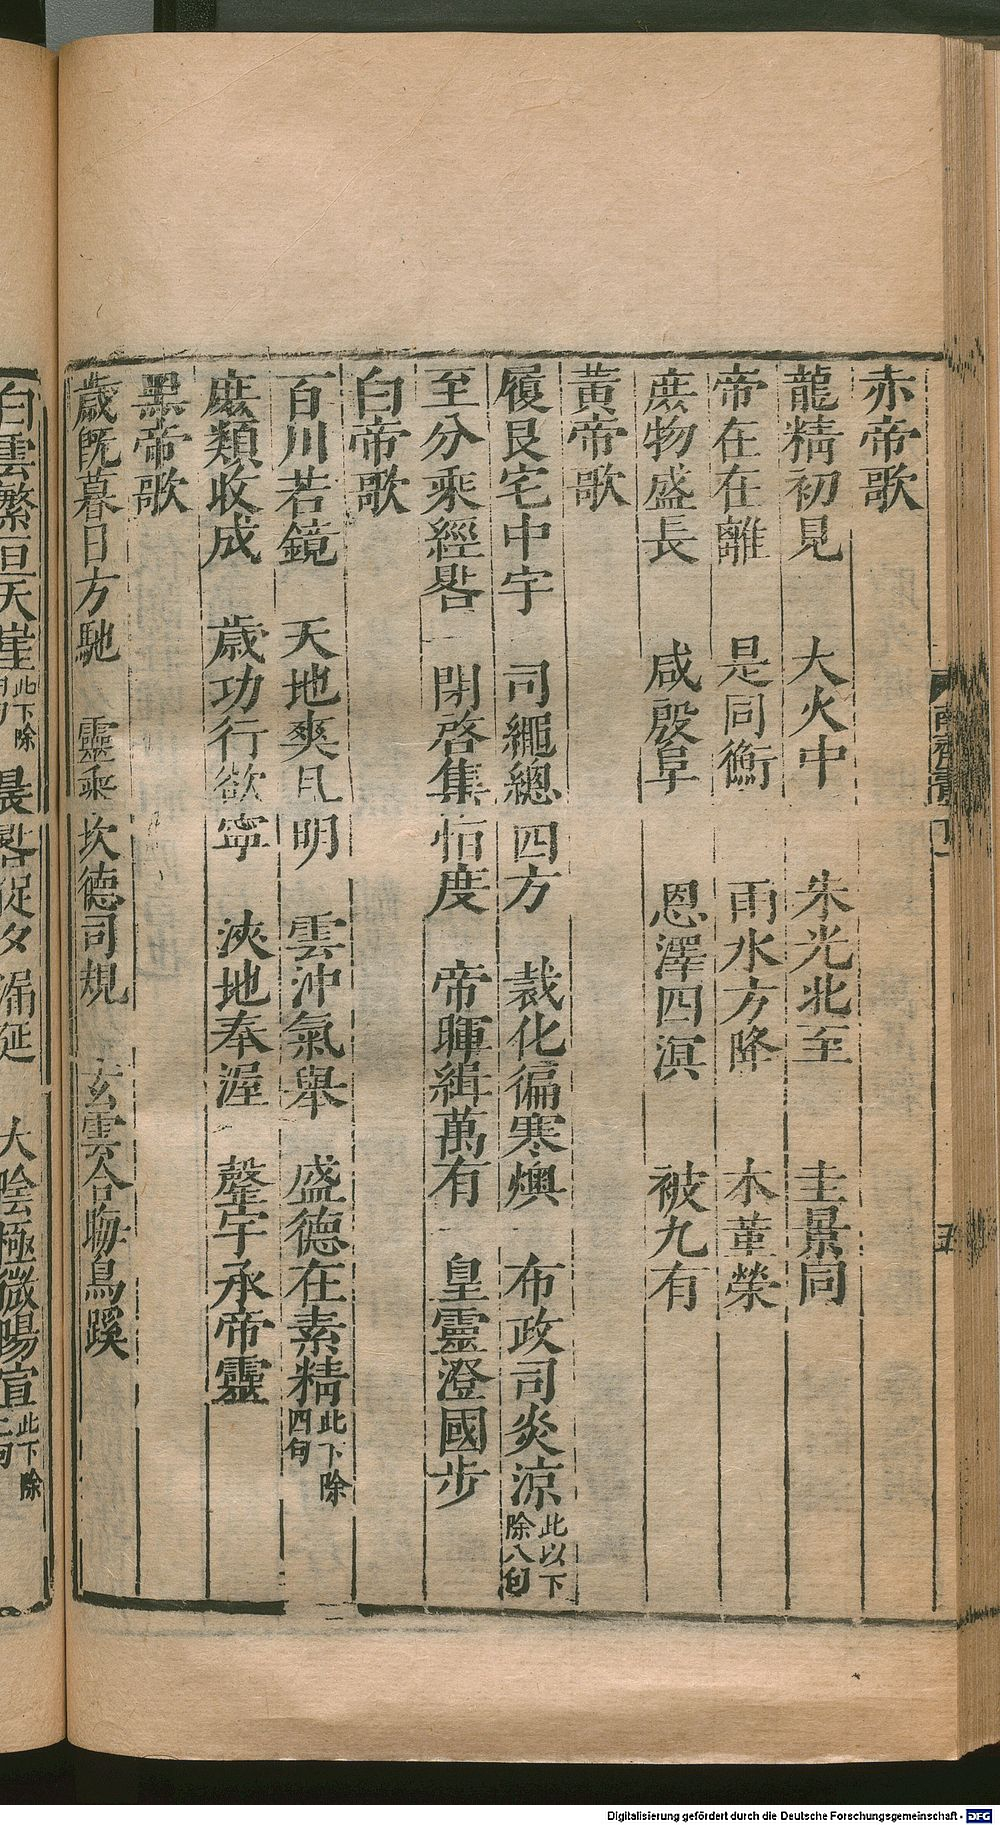 赤帝歌
龍精初見　大火中　朱光北至　圭景同
帝在在離　是同衡　雨水方降　木堇榮
庶物盛長　咸殷阜　恩澤四溟　被九有
黃帝歌
履艮宅中宇　司繩總四方　裁化徧寒燠　布政司炎涼 此以下除八句
至分乘經晷　閉啓集恒度　帝暉緝萬有　皇靈澄國步
白帝歌
百川若鏡　天地爽且明　雲沖氣舉　盛德在素精 此下除四句
庶類收成　歲功行欲寧　浹地奉渥　罄宇承帝靈
黑帝歌
歲既暮日方馳　靈乘坎德司規　玄雲合晦鳥蹊
白雲繁亘天崖 此下除　晨晷促夕漏延　大陰極微陽宣 此下除二句
南齊書
五
Digitalisierung gefördert durch die Deutsche Forschungsgemeinschaft - DFG